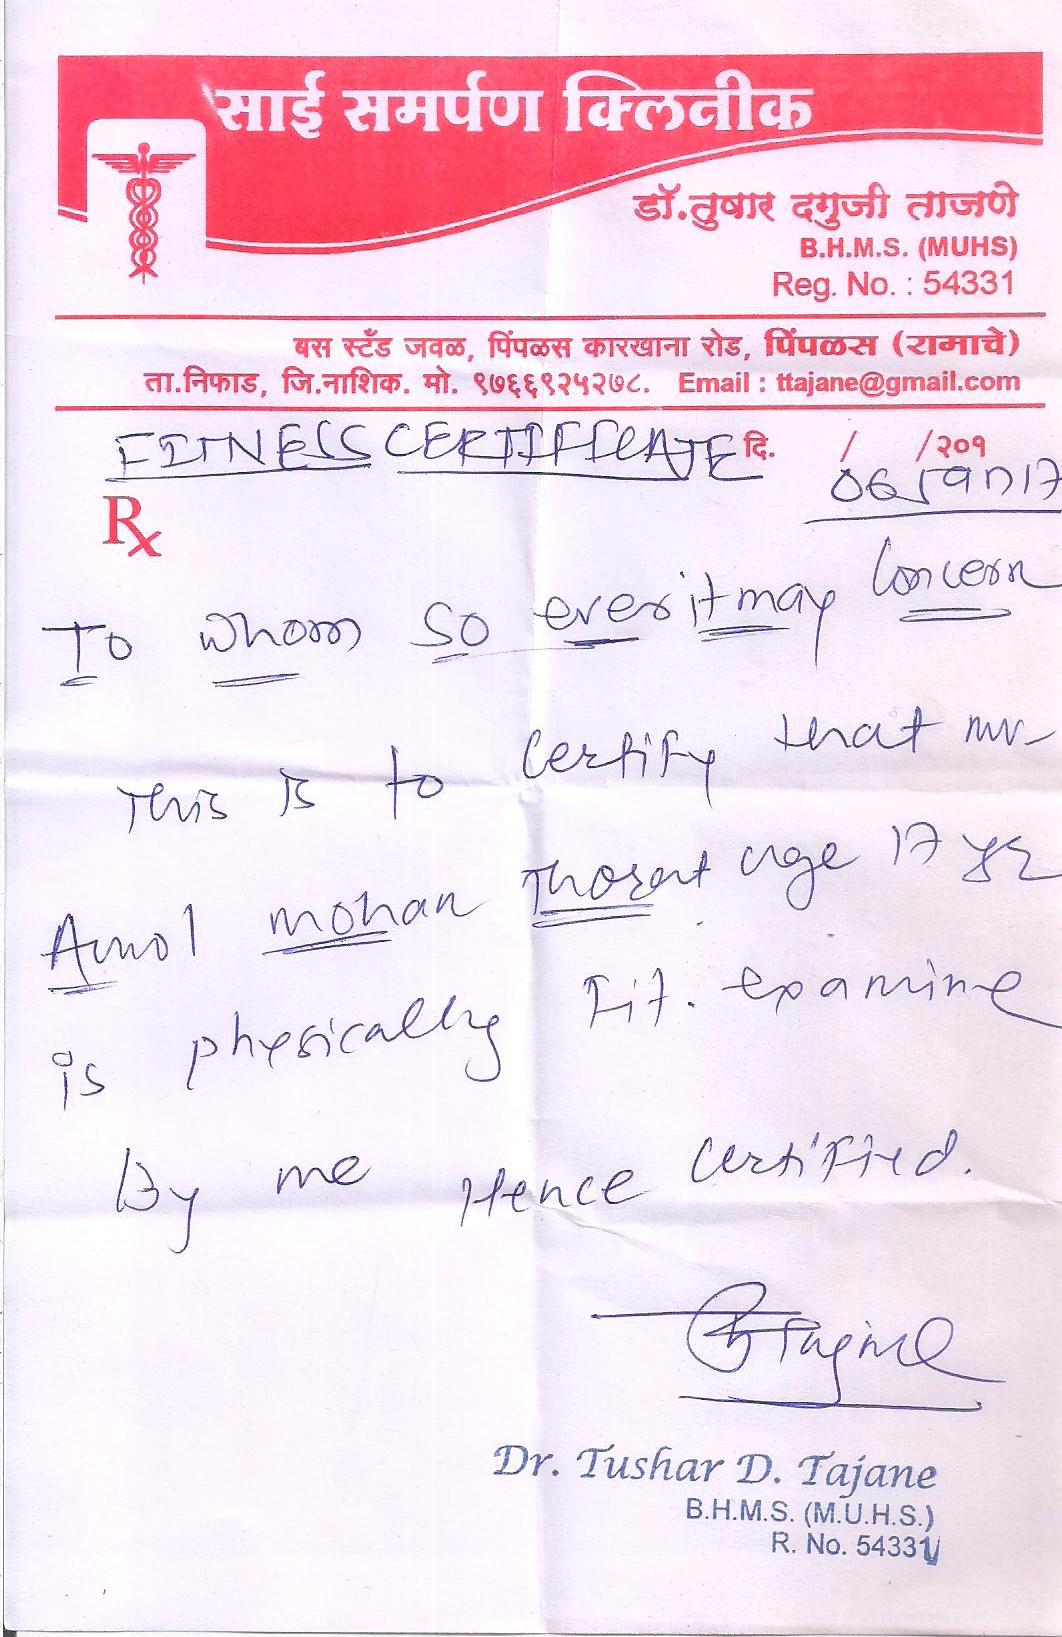 साई समर्पण क्लिनीक
डॉ.तुषार दगुजी ताजणे
B.H.M.S. (MUHS)
Reg. No. : 54331
बस स्टँड जवळ, पिंपळस कारखाना रोड, पिंपळस (रामाचे)
ता.निफाड, जि.नाशिक. मो. ९७६६९२५२७८. Email : ttajane@gmail.com
FITNESS CERTIFICATE दि. / /२०१
Rx
To whom so ever it may Concern
This is to Certify that mr
Amol mohan Thorat age 17 yr
is physically Fit. examine
By me Hence Certified.
Dr. Tushar D. Tajane
B.H.M.S. (M.U.H.S.)
R. No. 54331